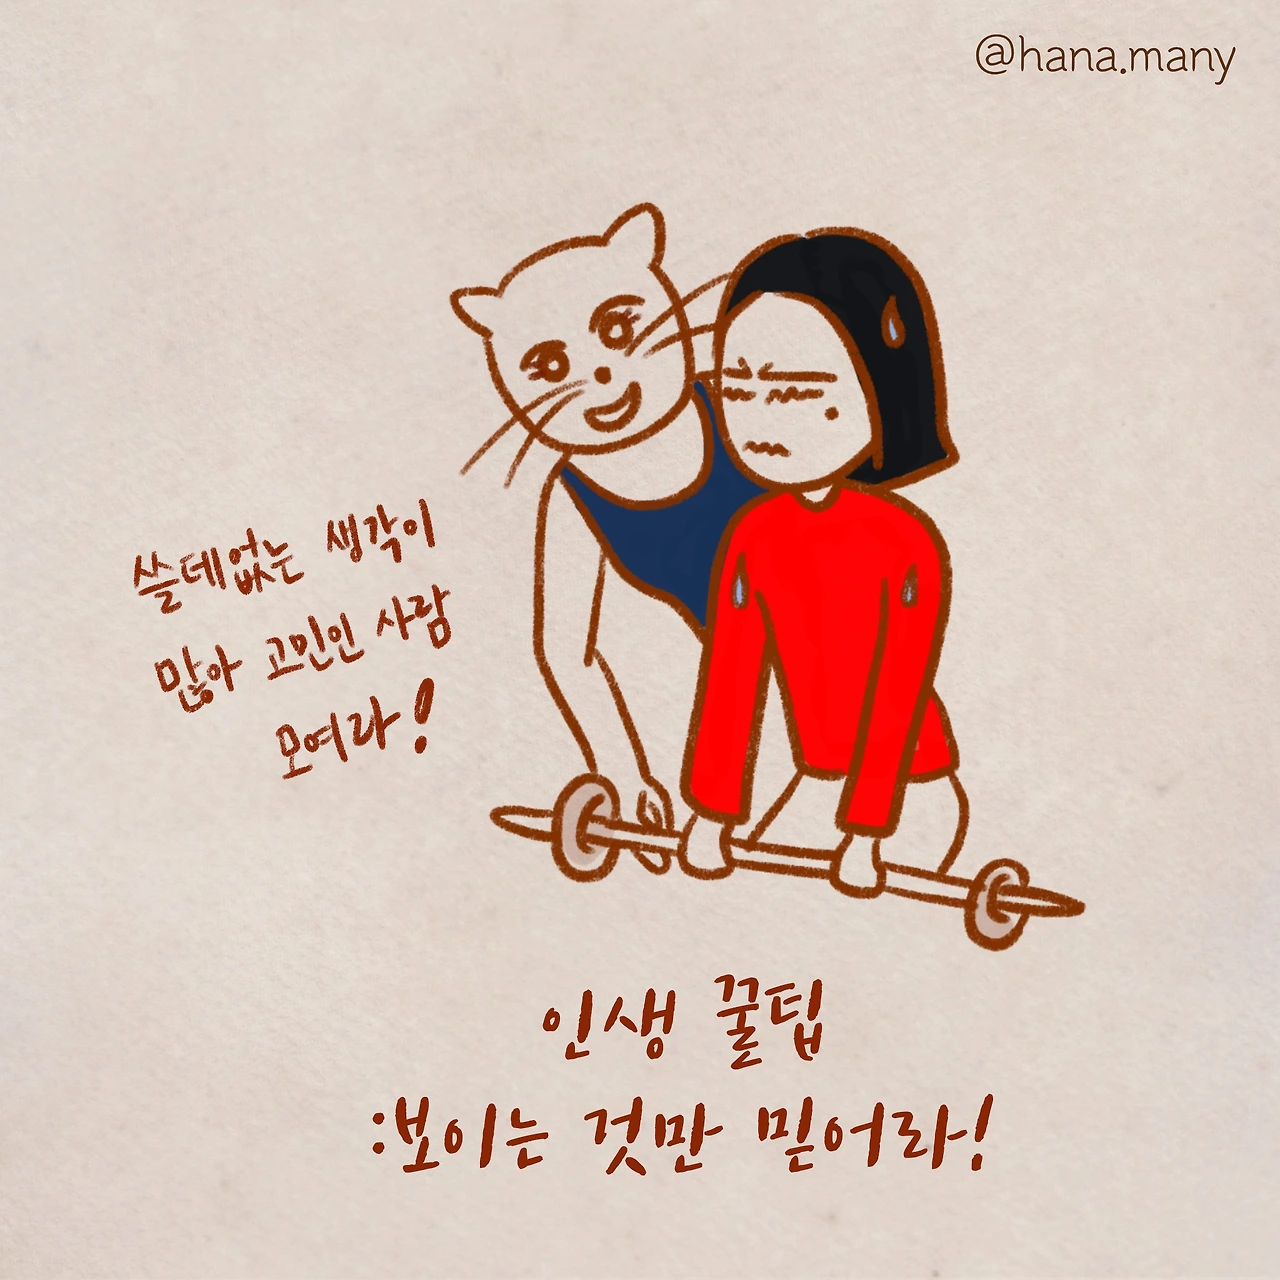 @hana.many
쓸데없는 생각이
많아 고민인 사람
모여라!
인생 꿀팁
:보이는 것만 믿어라!